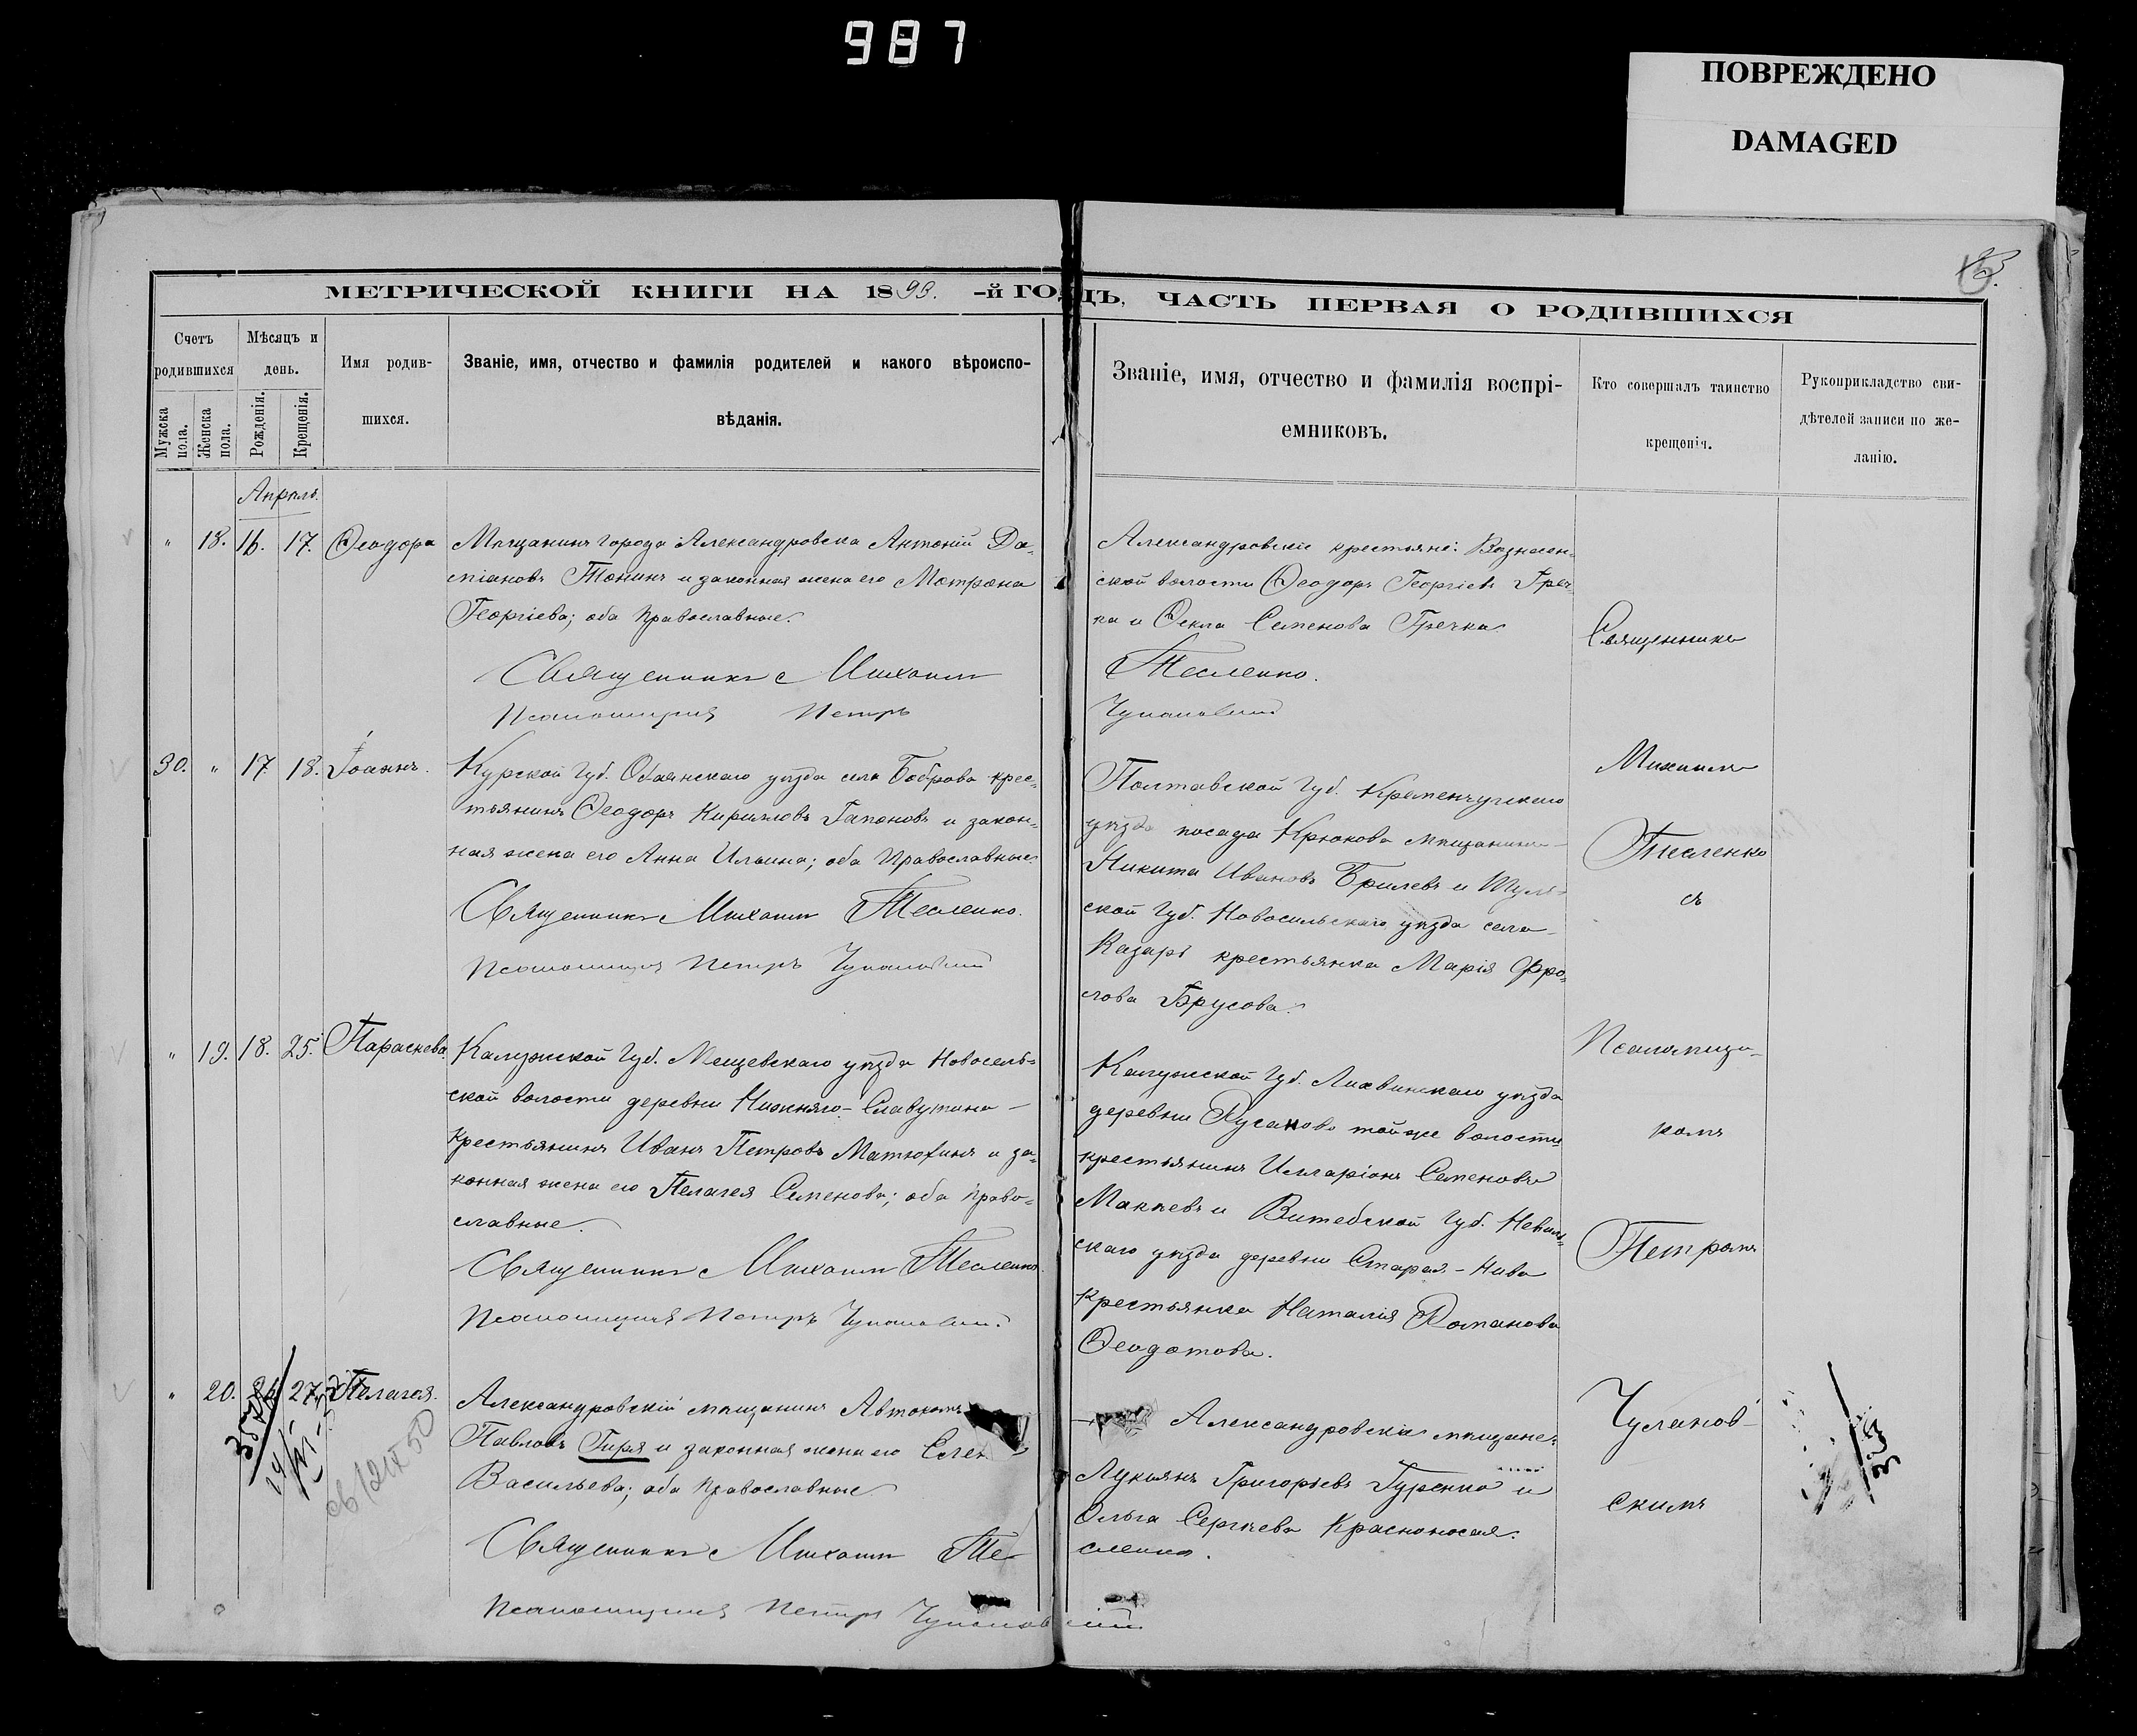 987
ПОВРЕЖДЕНО
DAMAGED
МЕТРИЧЕСКОЙ КНИГИ НА 1893.-й ГОДЪ, ЧАСТЬ ПЕРВАЯ О РОДИВШИХСЯ
Счетъ родившихся
Мужска пола.
Женска пола.
Мѣсяцъ и день.
Рожденія.
Крещенія.
Имя родив-
шихся.
Званіе, имя, отчество и фамилія родителей и какого вѣроиспо-
вѣданія.
Званіе, имя, отчество и фамилія воспрі-
емниковъ.
Кто совершалъ таинство
крещенія.
Рукоприкладство сви-
дѣтелей записи по же-
ланію.
Апрѣль.
" 18. 16. 17. Ѳеодора
Мѣщанинъ города Александровска Антоній Да-
міановъ Тонинъ и законная жена его Матрона
Георгіева; оба православные.
Священникъ Михаилъ Тесленко.
Псаломщикъ Петръ Чулановскій
Александровскіе крестьяне: Вознесен-
ской волости Ѳеодоръ Георгіевъ Греч-
ка и Ѳекла Семенова Гречка.
30. " 17 18. Іоаннъ.
Курской губ. Обаянскаго уѣзда села Боброва крес-
тьянинъ Ѳеодоръ Кирилловъ Гапоновъ и закон-
ная жена его Анна Ильина; оба Православные
Священникъ Михаилъ Тесленко.
Псаломщикъ Петръ Чулановскій
Полтавской губ. Кременчугскаго
уѣзда посада Крюкова мѣщанинъ
Никита Ивановъ Брилевъ и Туль-
ской губ. Новосильскаго уѣзда села
Казарь крестьянка Марія Фро-
лова Брусова.
" 19. 18. 25. Параскева.
Калужской губ. Мещевскаго уѣзда Новосель-
ской волости деревни Нижняго-Славутина
крестьянинъ Иванъ Петровъ Матюхинъ и за-
конная жена его Пелагея Семенова; оба право-
славные.
Священникъ Михаилъ Тесленко.
Псаломщикъ Петръ Чулановскій
Калужской губ. Лихвинскаго уѣзда
деревни Русаново той же волости
крестьянинъ Илларіонъ Семеновъ
Макѣевъ и Витебской губ. Невель-
скаго уѣзда деревни Старая-Нива
крестьянка Наталія Романова
Ѳеодотова.
" 20. 27. Пелагея.
Александровскій мѣщанинъ Автономъ
Павловъ Гиря и законная жена его Елен
Васильева; оба православные
Священникъ Михаилъ Тесленко.
Псаломщикъ Петръ Чулановскій
Александровскіе мѣщане:
Лукіянъ Григорьевъ Гуренко и
Ольга Сергѣева Красноносая.
Священникъ
Михаилъ
Тесленко
съ
Псаломщи-
комъ
Петромъ
Чуланов-
скимъ